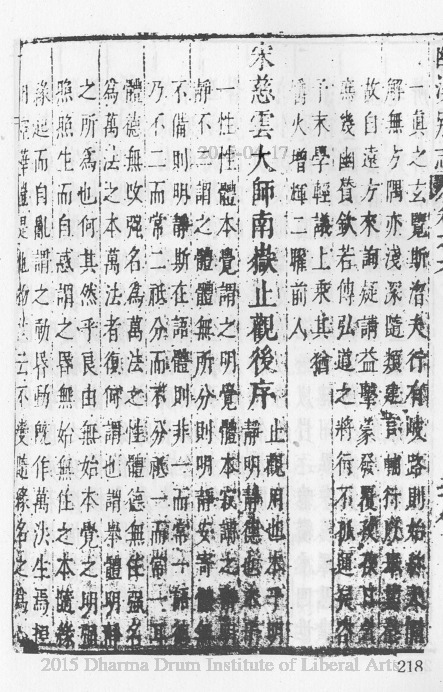 一真之玄覽斯洛夫行有岐路則始終天隔
解無方隅亦淺深隨類建言輔行於
故自遠方來詢疑請益擊蒙發覆
庶幾幽贊欽若傳弘道之將行不孤
予末學輕議上乘其猶
爝火增輝二曜前人
宋慈雲大師南嶽止觀後序
止觀用也本乎明
靜明靜德也本乎
一性性體本覺謂之明覺體本寂謂之靜明
靜不二謂之體體無所分則明靜安寄體無
不備則明靜斯在語體則非一而常一語德
乃不二而常二秖分而不分秖一而不一耳
體德無改強名為萬法之性體德無住強名
為萬法之本萬法者復何謂也謂舉體明靜
之所為也何其然乎良由無始本覺之明強
照照生而自惑謂之昏無始無住之本隨緣
緣起而自亂謂之動昏動既作萬法生焉捏
2015-04-17
2015 Dharma Drum Institute of Liberal Arts
218